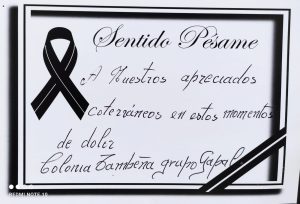 Sentido Pésame
A Nuestros apreciados
coterráneos en estos momentos
de dolir
Colonia Tambeña grupo
REDMI NOTE 10